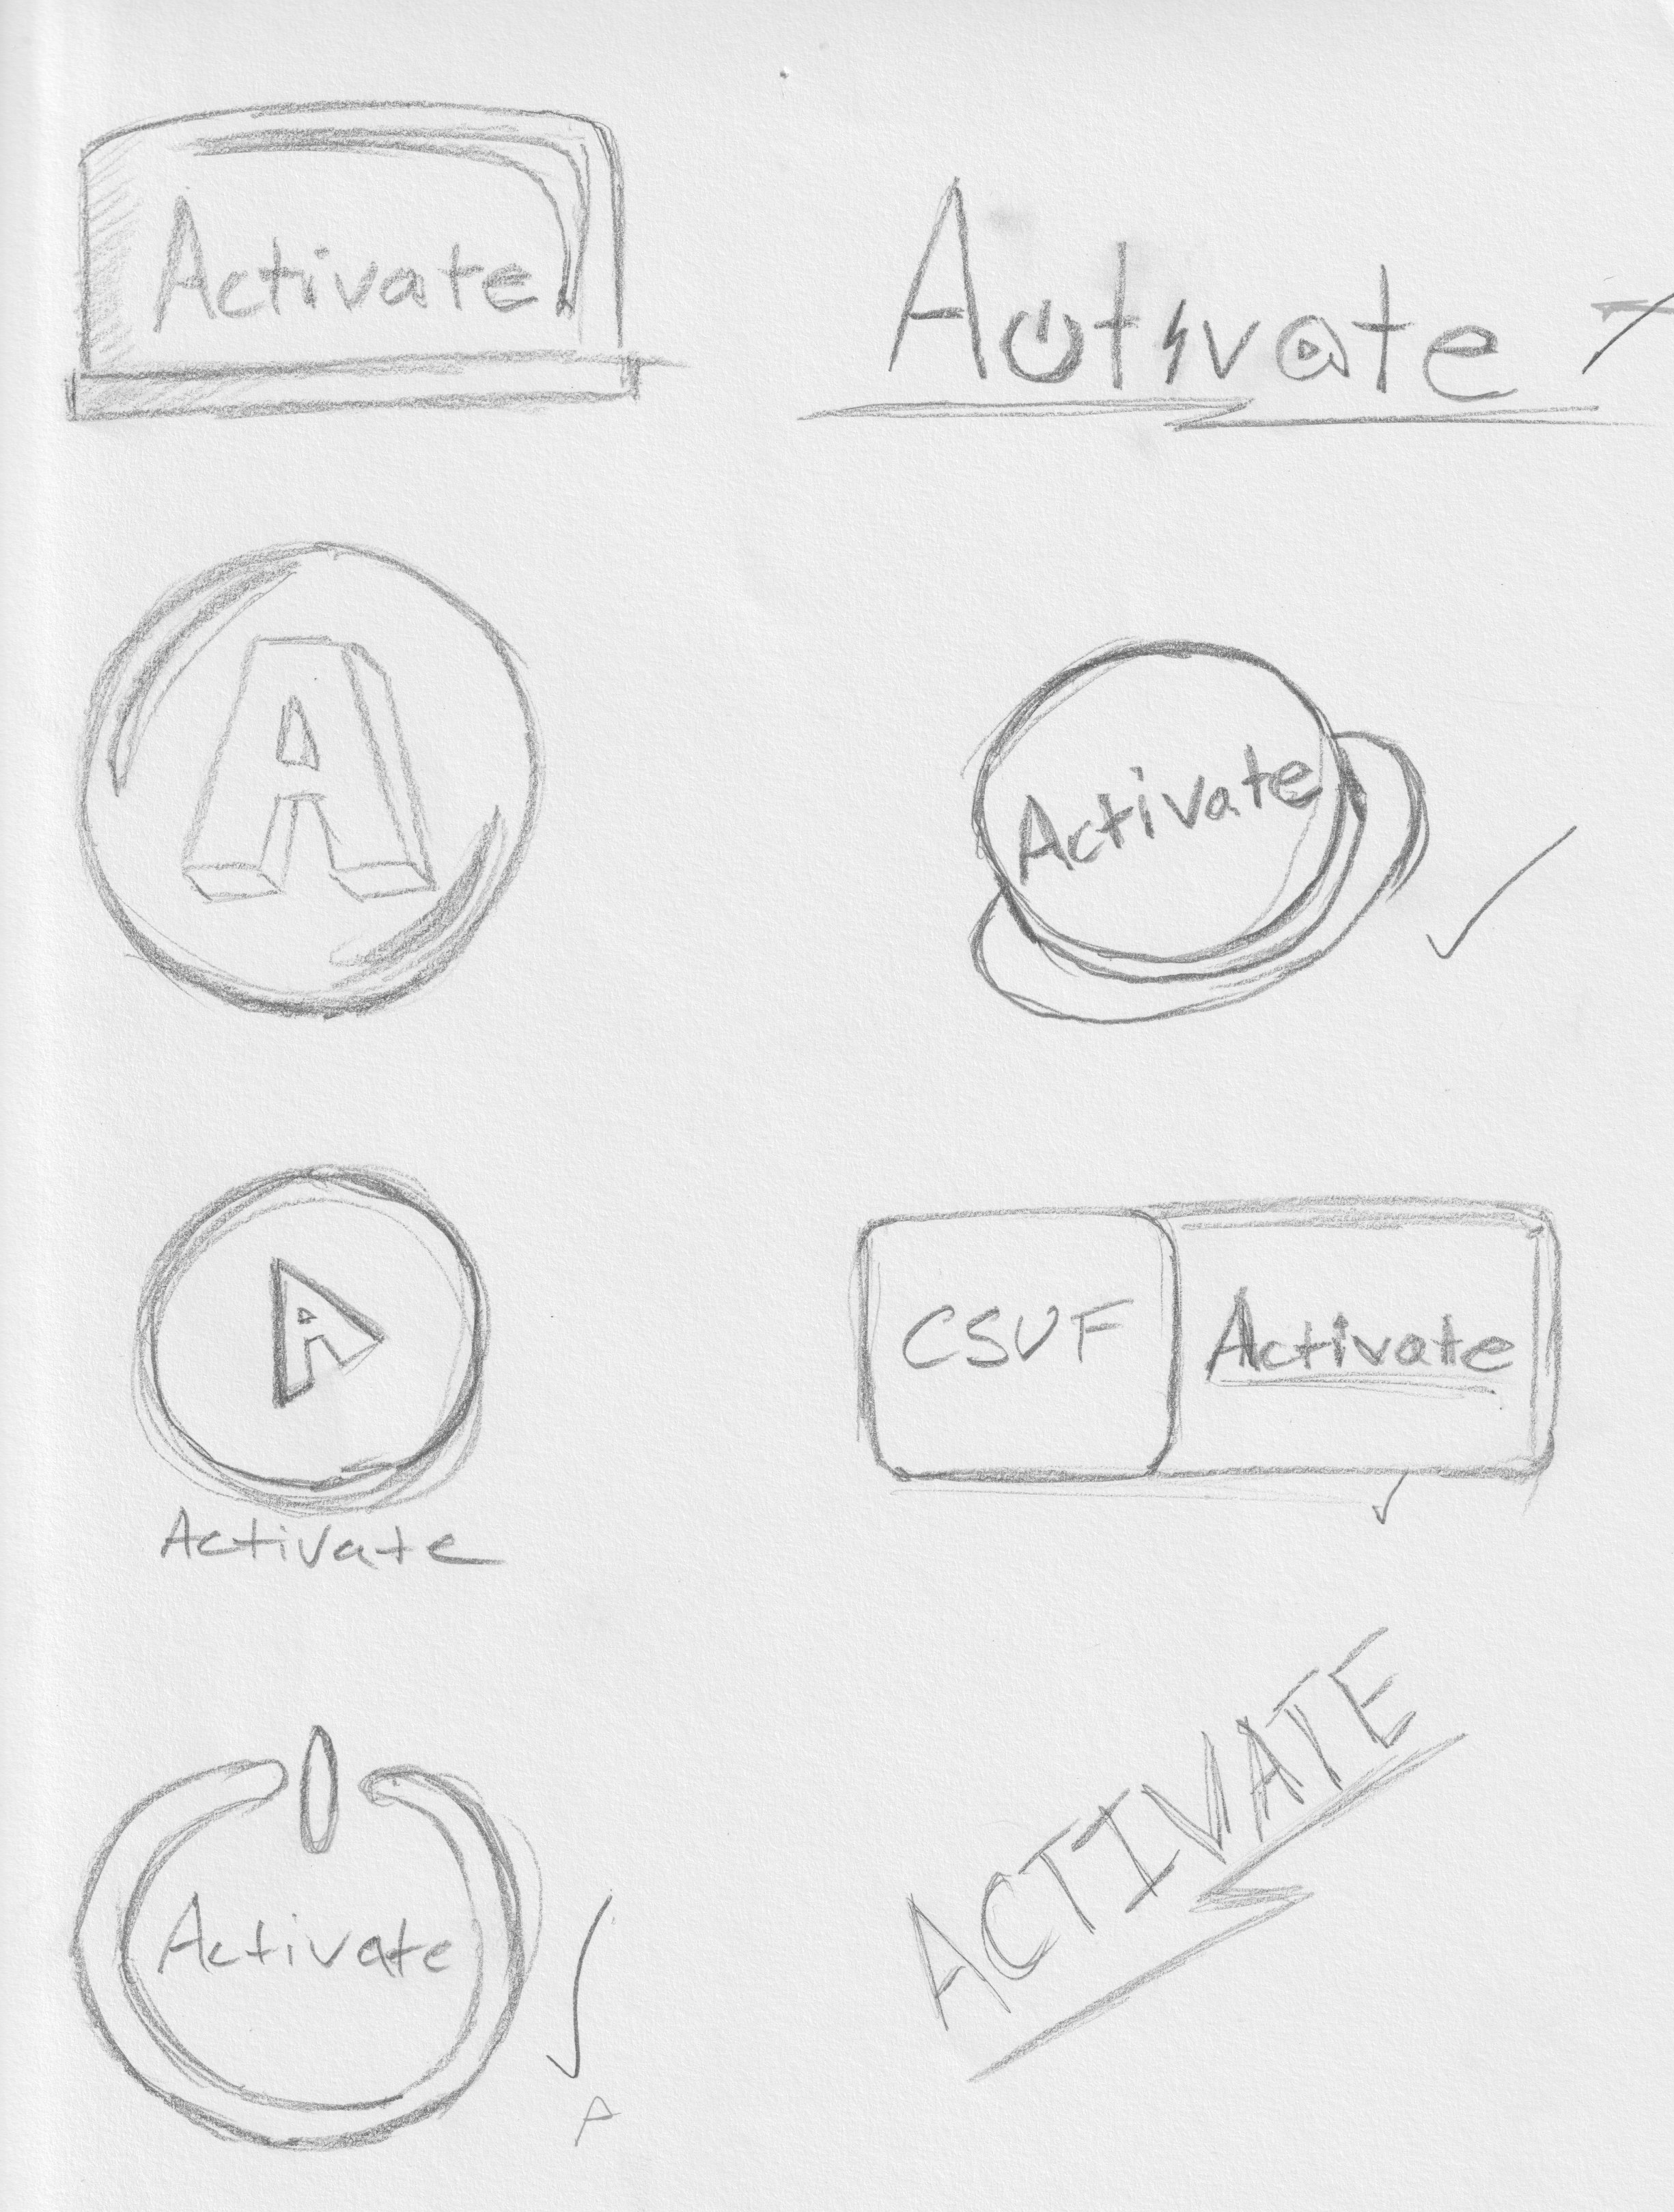 Activate
Activate
A
Activate
A
Activate
CSUF
Activate
Activate
ACTIVATE
A